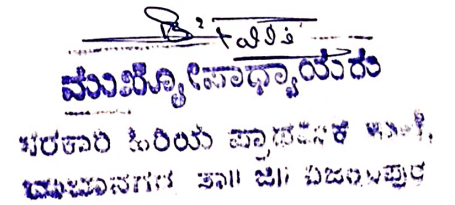 ಮುಖ್ಯೋಪಾಧ್ಯಾಯರು
ಸರಕಾರಿ ಹಿರಿಯ ಪ್ರಾಥಮಿಕ ಶಾಲೆ,
ತಾ|| ಜಿ|| ವಿಜಯಪುರ